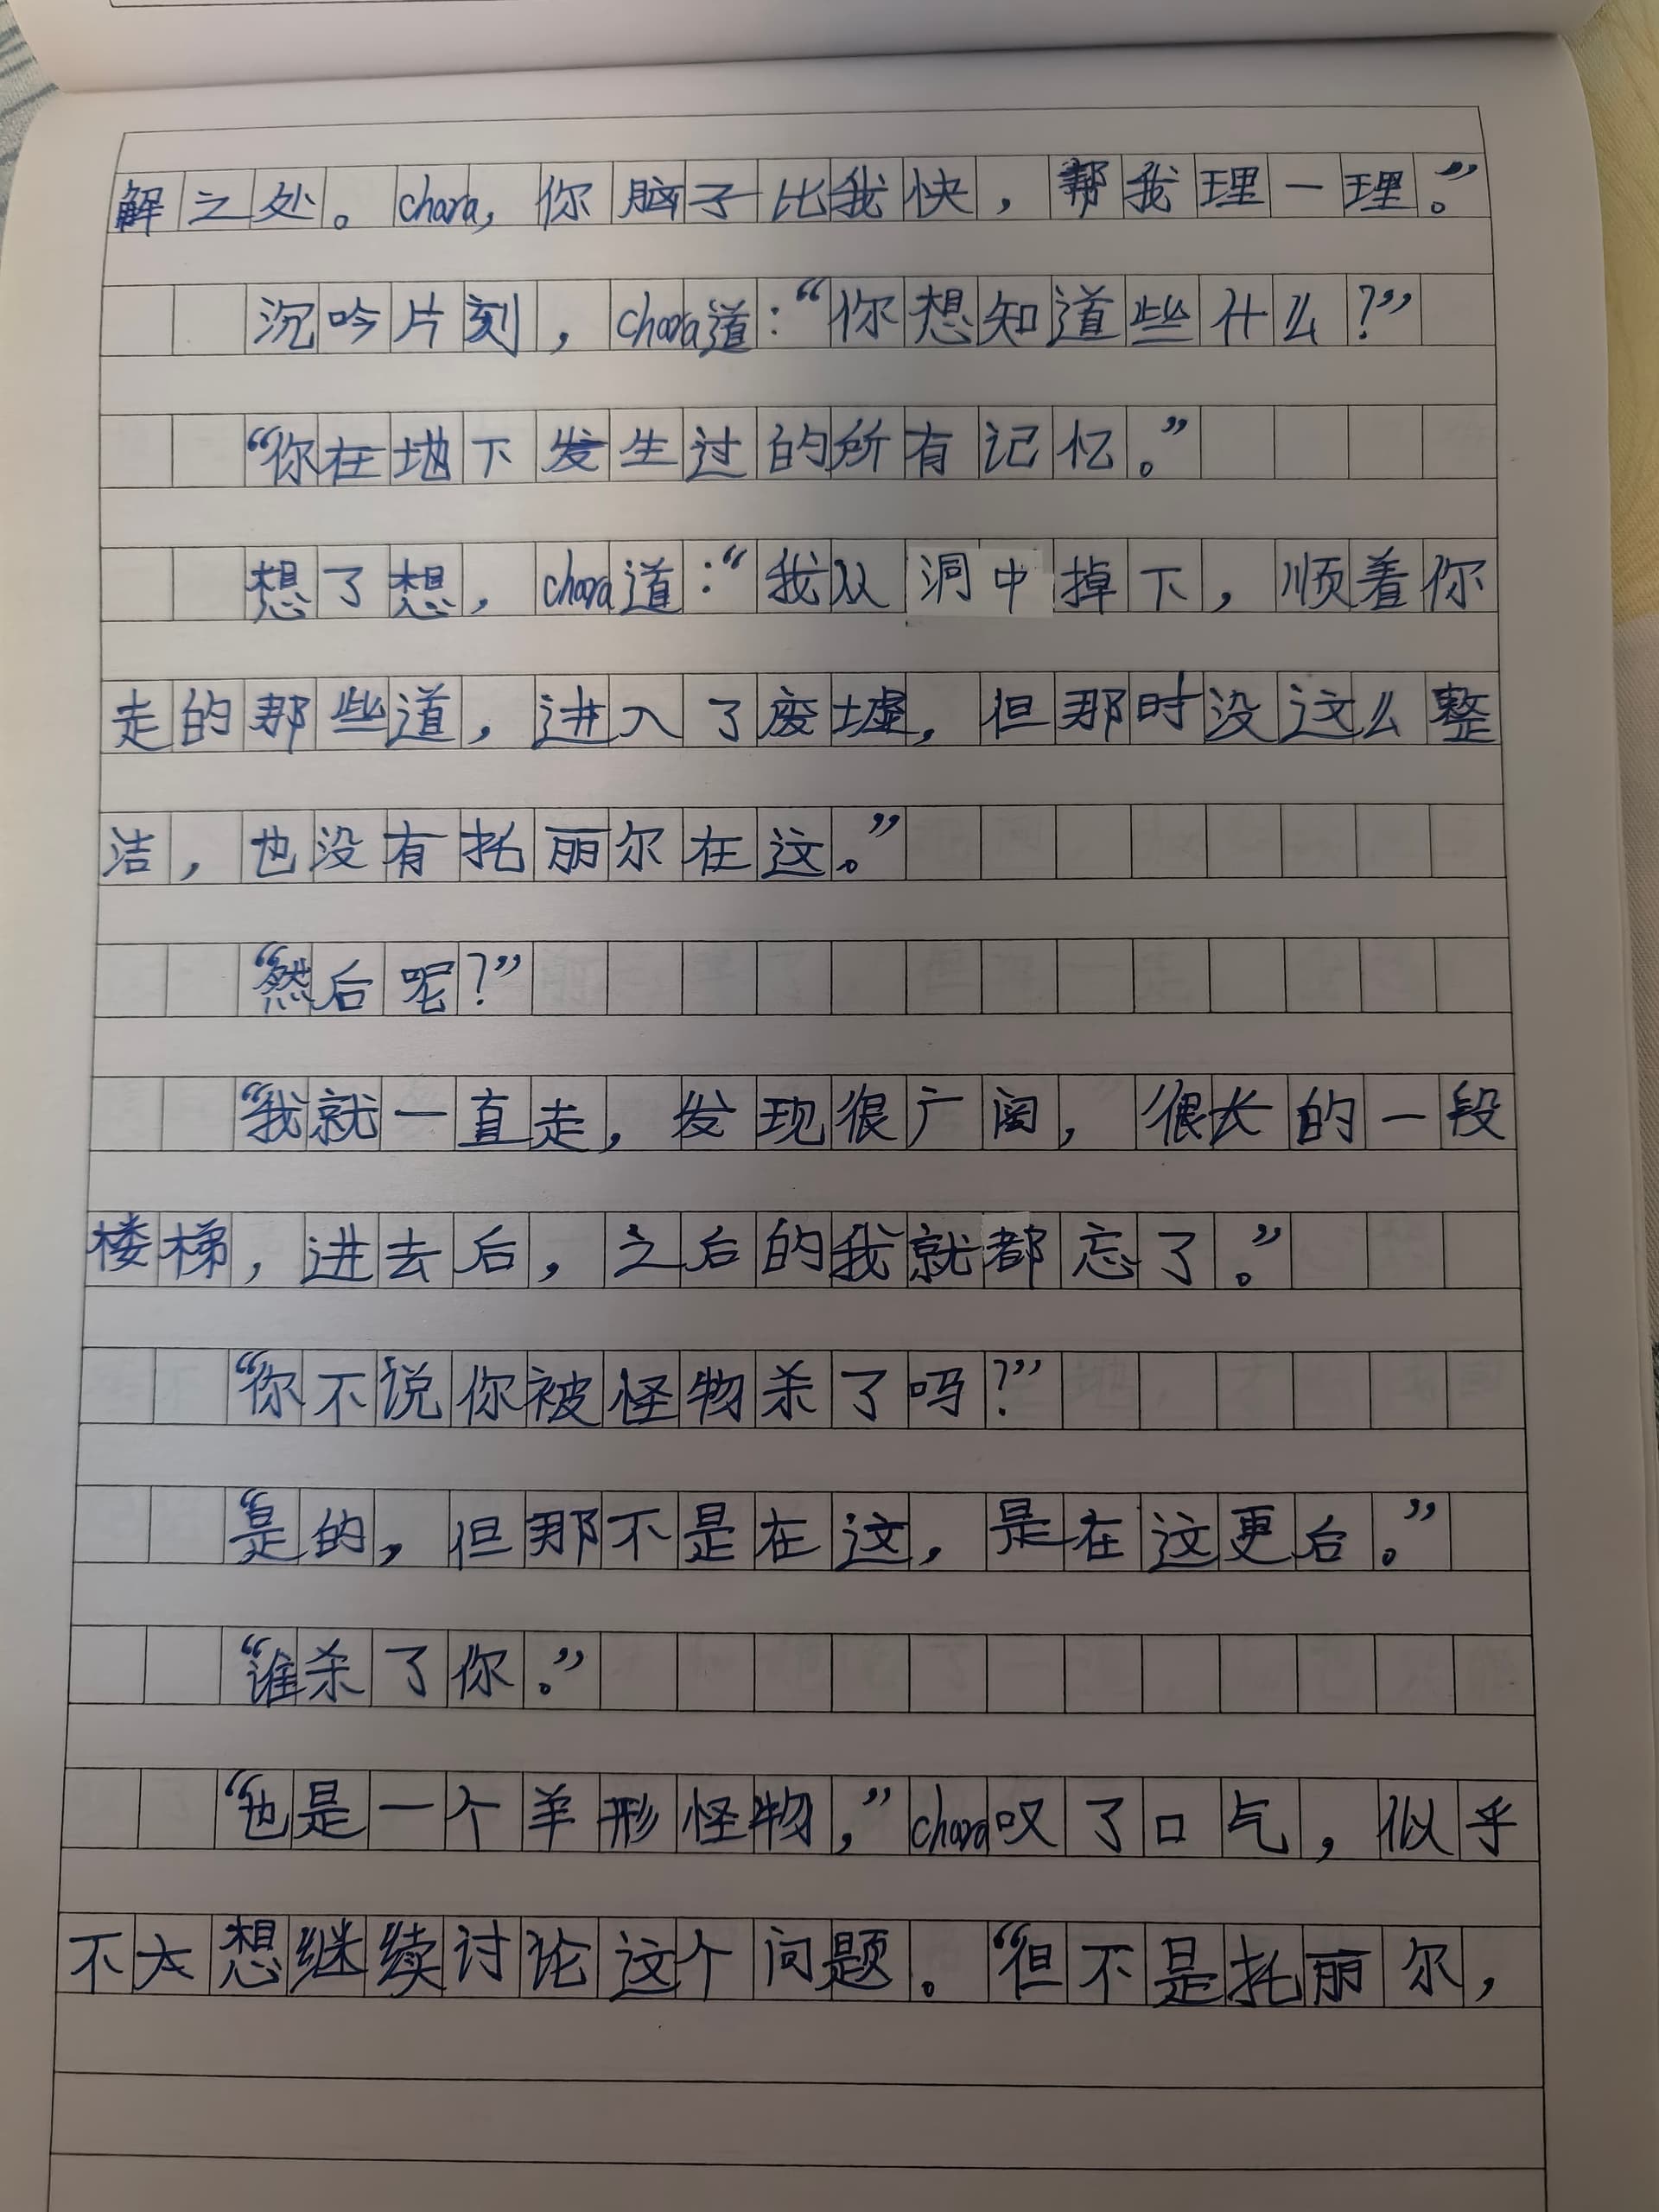 解之处。chara,你脑子比我快，帮我理一理。”
沉吟片刻，chara道：“你想知道些什么？”
“你在地下发生过的所有记忆。”
想了想，chara道：“我从洞中掉下，顺着你
走的那些道，进入了废墟，但那时没这么整
洁，也没有托丽尔在这。”
“然后呢？”
“我就一直走，发现很广阔，很长的一段
楼梯，进去后，之后的我就都忘了。”
“你不说你被怪物杀了吗？”
“是的，但那不是在这，是在这更后。”
“谁杀了你。”
“也是一个羊形怪物，”chara叹了口气，似乎
不太想继续讨论这个问题。“但不是托丽尔，